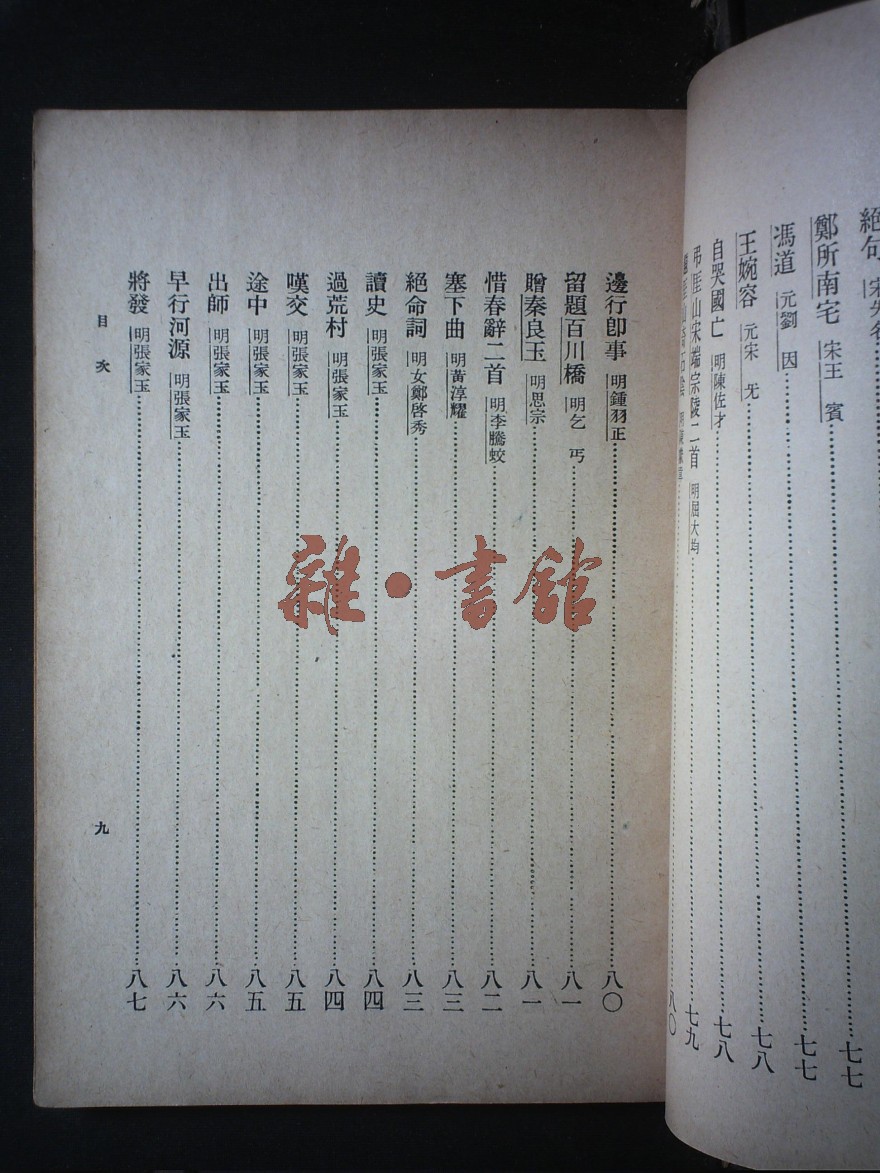 絕句 宋
鄭所南宅 宋王 賓 七七
馮道 元劉 因 七七
王婉容 元宋 无 七八
自哭國亡 明陳佐才 七八
弔崖山宋端宗陵二首 明屈大均 七九
崖山 石 八〇
邊行卽事 明鍾羽正 八〇
留題百川橋 明乞 丐 八一
贈秦良玉 明思宗 八一
惜春辭二首 明李騰蛟 八二
塞下曲 明黃淳耀 八三
絕命詞 明女鄭啓秀 八三
讀史 明張家玉 八四
過荒村 明張家玉 八四
嘆交 明張家玉 八五
途中 明張家玉 八五
出師 明張家玉 八六
早行河源 明張家玉 八六
將發 明張家玉 八七
目次 九
雜·書館